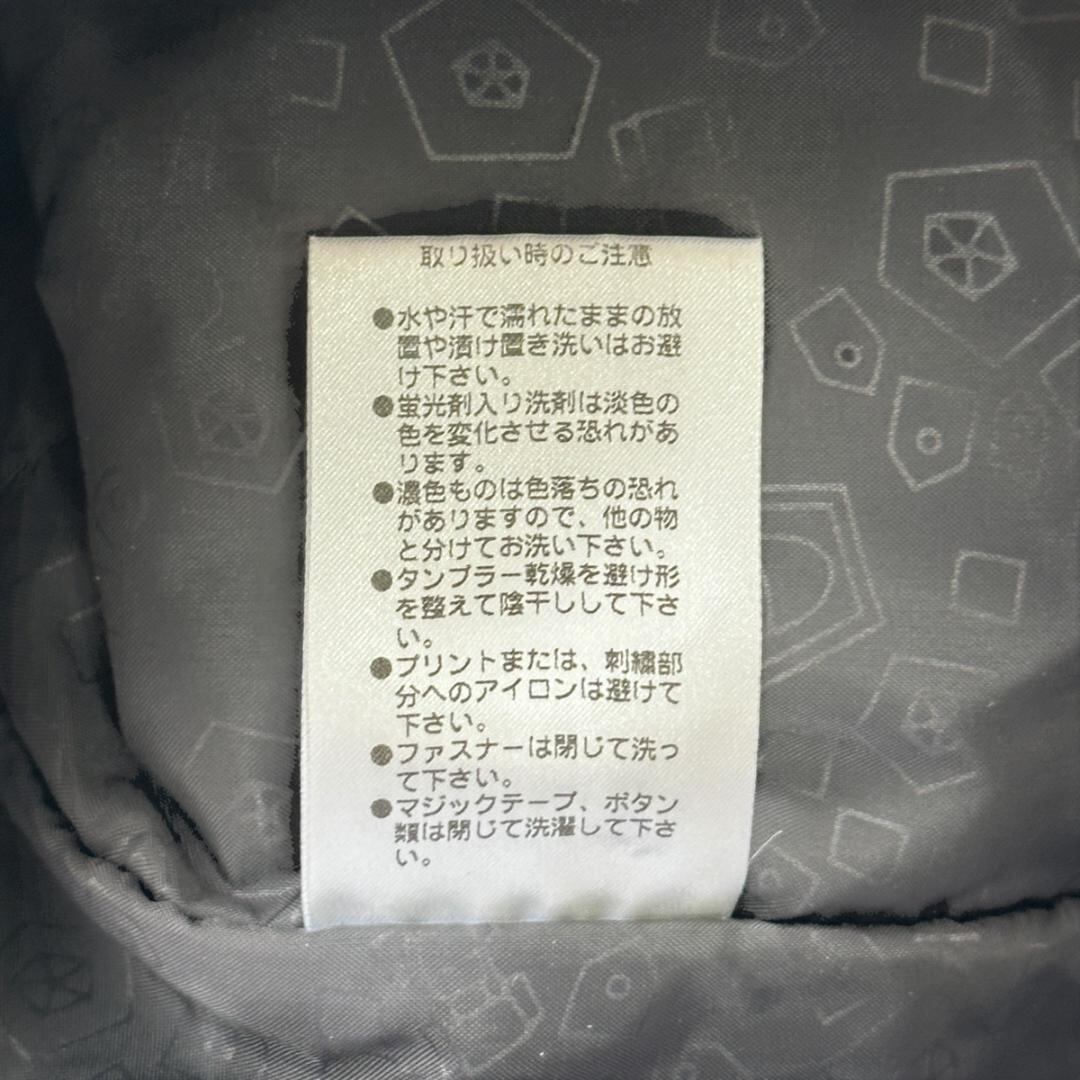 取り扱い時のご注意
●水や汗で濡れたままの放
置や漬け置き洗いはお避
け下さい。
●蛍光剤入り洗剤は淡色の
色を変化させる恐れがあ
ります。
●濃色ものは色落ちの恐れ
がありますので、他の物
と分けてお洗い下さい。
●タンブラー乾燥を避け形
を整えて陰干しして下さ
い。
●プリントまたは、刺繍部
分へのアイロンは避けて
下さい。
●ファスナーは閉じて洗っ
て下さい。
●マジックテープ、ボタン
類は閉じて洗濯して下さ
い。